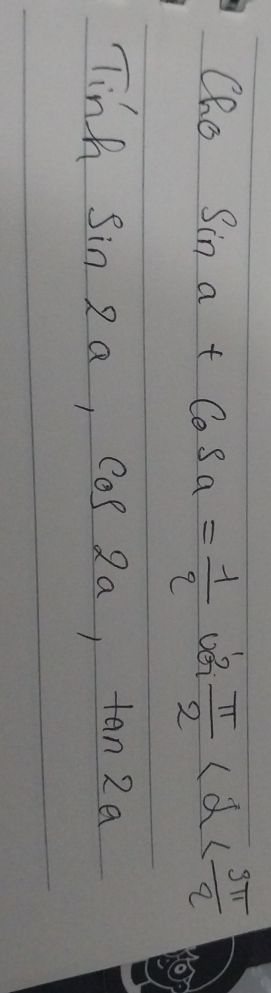 Cho Sin a + Cos a = 1/2 với π/2 < α < 3π/2
Tính Sin 2a, Cos 2a, tan 2a